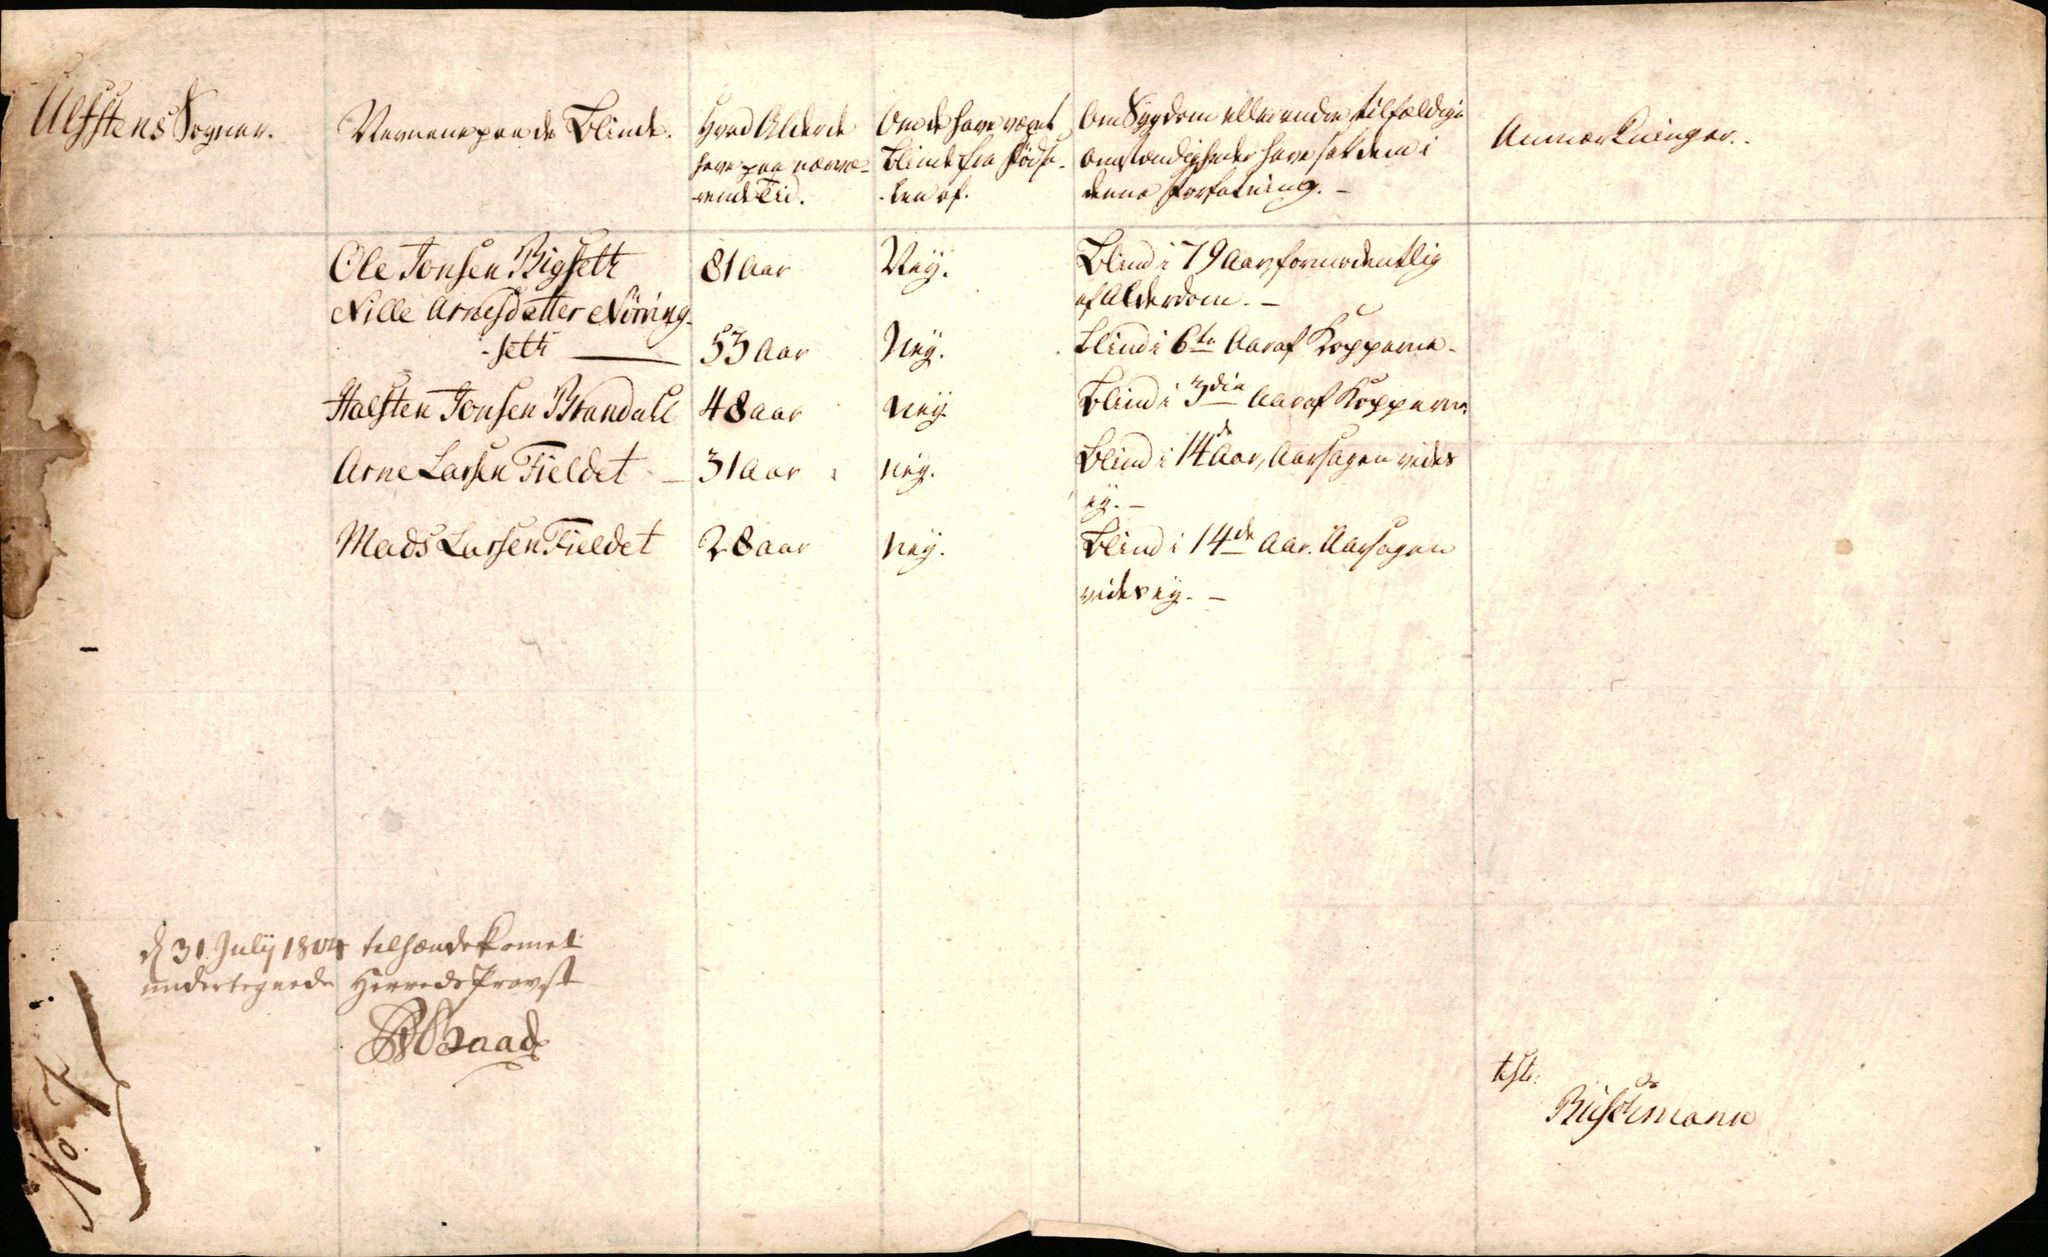 Ulfstens Sogner.
Navnene paa de Blinde.
Hvad Alder de
have paa nærvæ-
rende Tid.
Om de have været
blinde fra Fødse-
len af.
Om Sygdom eller andre tilfældige
omstændigheder have sat dem i
denne Forfatning. -
Anmærkninger.
Ole Jonsen Rigseth
81 Aar
Ney.
Blind i 79 Aar, formodentlig
af Alderdom. -
Nille Arnesdatter Nöring-
-seth
53 Aar
Ney.
blind i 6te Aar af Kopperne.
Halsten Jonsen Brandall
48 aar
Ney
Blind i 3die Aar af Kopperne
Arne Larsen Fieldet
31 Aar
Ney.
Blind i 14de Aar, Aarsagen vides
ey. -
Mads Larsen Fieldet
28 aar
Ney.
Blind i 14de Aar. Aarsagen
vides ey. -
d 31 July 1804 tilhændekomet
undertegnede Herreds Provst
Baade
test:
Buschmann
No. 7